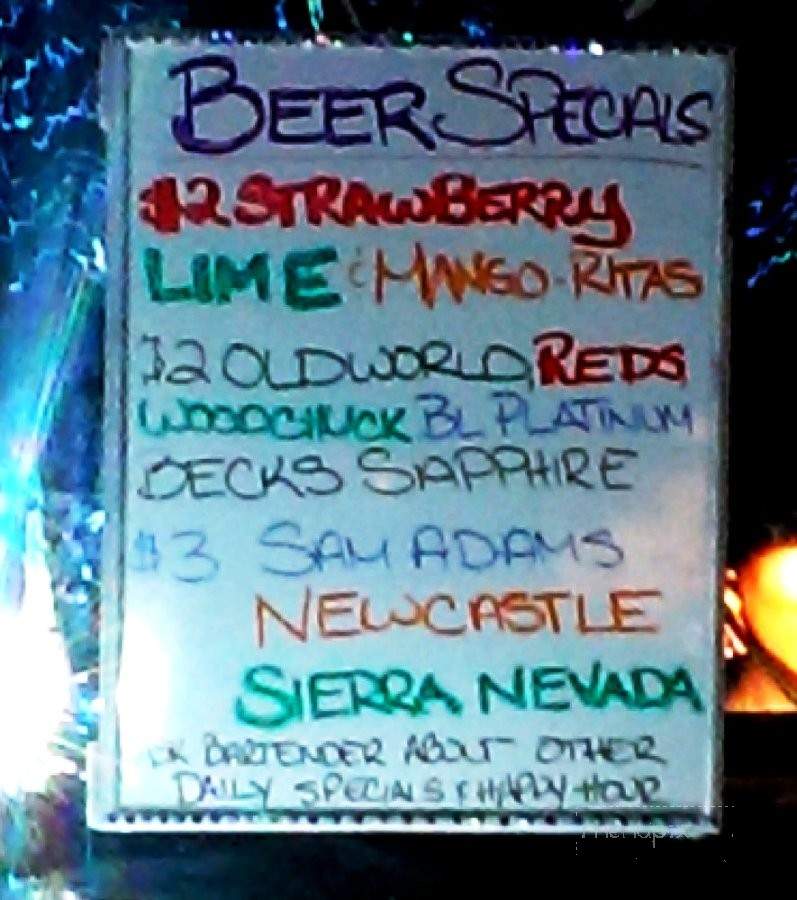 BEER SPECIALS
$2 STRAWBERRY
LIME & MANGO-RITAS
$2 OLDWORLD, REDS
WOODCHUCK BL PLATINUM
BECKS SAPPHIRE
$3 SAM ADAMS
NEWCASTLE
SIERRA NEVADA
BARTENDER ABOUT OTHER
DAILY SPECIALS & HAPPY HOUR